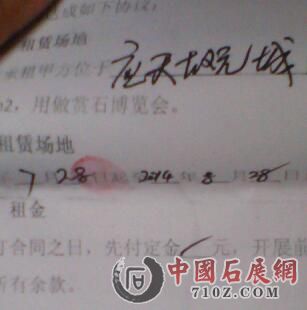 成如下协议，
租赁场地
承租甲方位于
m2，用做赏石博览会。
租赁场地
7月28日起至2014年8月28日
租金
订合同之日，先付定金 元，开展前
所有余款。
中國石展網
710Z.COM